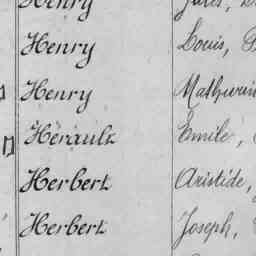 Henry Jules,
Henry Louis,
Henry Mathurin
Hérault Emile,
Herbert Aristide,
Herbert Joseph,